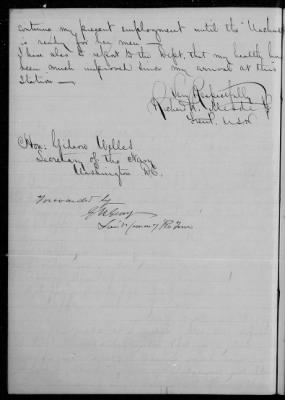 continue my present employment until the
is ready for
I have also to report to the Dept. that my health has
been much improved since my arrival at this
Station —
Very Respectfully
Lieut. U.S.N.
Hon: Gideon Welles
Secretary of the Navy
Washington D.C.
Forwarded by